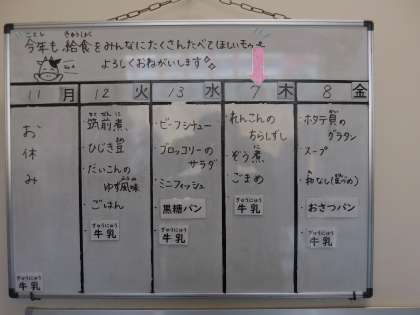 今年も給食をみんなにたくさんたべてほしいもぅ
よろしくおねがいします
11 月
お休み
ぎゅうにゅう
牛乳
12 火
筑前煮
ひじき豆
だいこんの
ゆず風味
ごはん
ぎゅうにゅう
牛乳
13 水
ビーフシチュー
ブロッコリーの
サラダ
ミニフィッシュ
黒糖パン
ぎゅうにゅう
牛乳
7 木
れんこんの
ちらしずし
ぞう煮
ごまめ
ぎゅうにゅう
牛乳
8 金
ホタテ貝の
グラタン
スープ
おさつパン
ぎゅうにゅう
牛乳